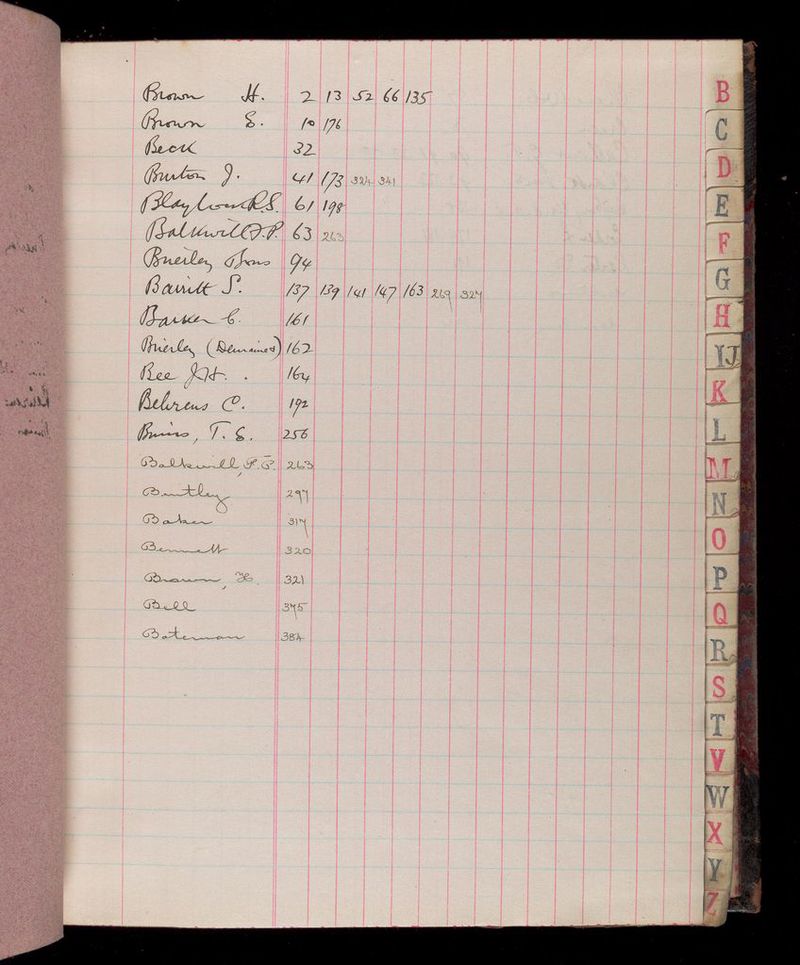 Brown H. 2 13 52 66 135
Brown E. 10 176
Beck 32
Burton J. 41 173 324 341
R.S. 61 198
Balkwill F.P. 63 263
Brierley Bros 94
Barritt S. 137 139 141 147 163 269 327
Barker C. 161
Brierley 162
Bee J.H. 164
Behrens C. 192
T. E. 256
Balkwill, F.P. 263
Bentley 297
Baker 317
Bennett 320
Brown, H. 321
Bell 375
Bateman 384
B
C
D
E
F
G
H
IJ
K
L
M
N
O
P
Q
R
S
T
V
W
X
Y
Z